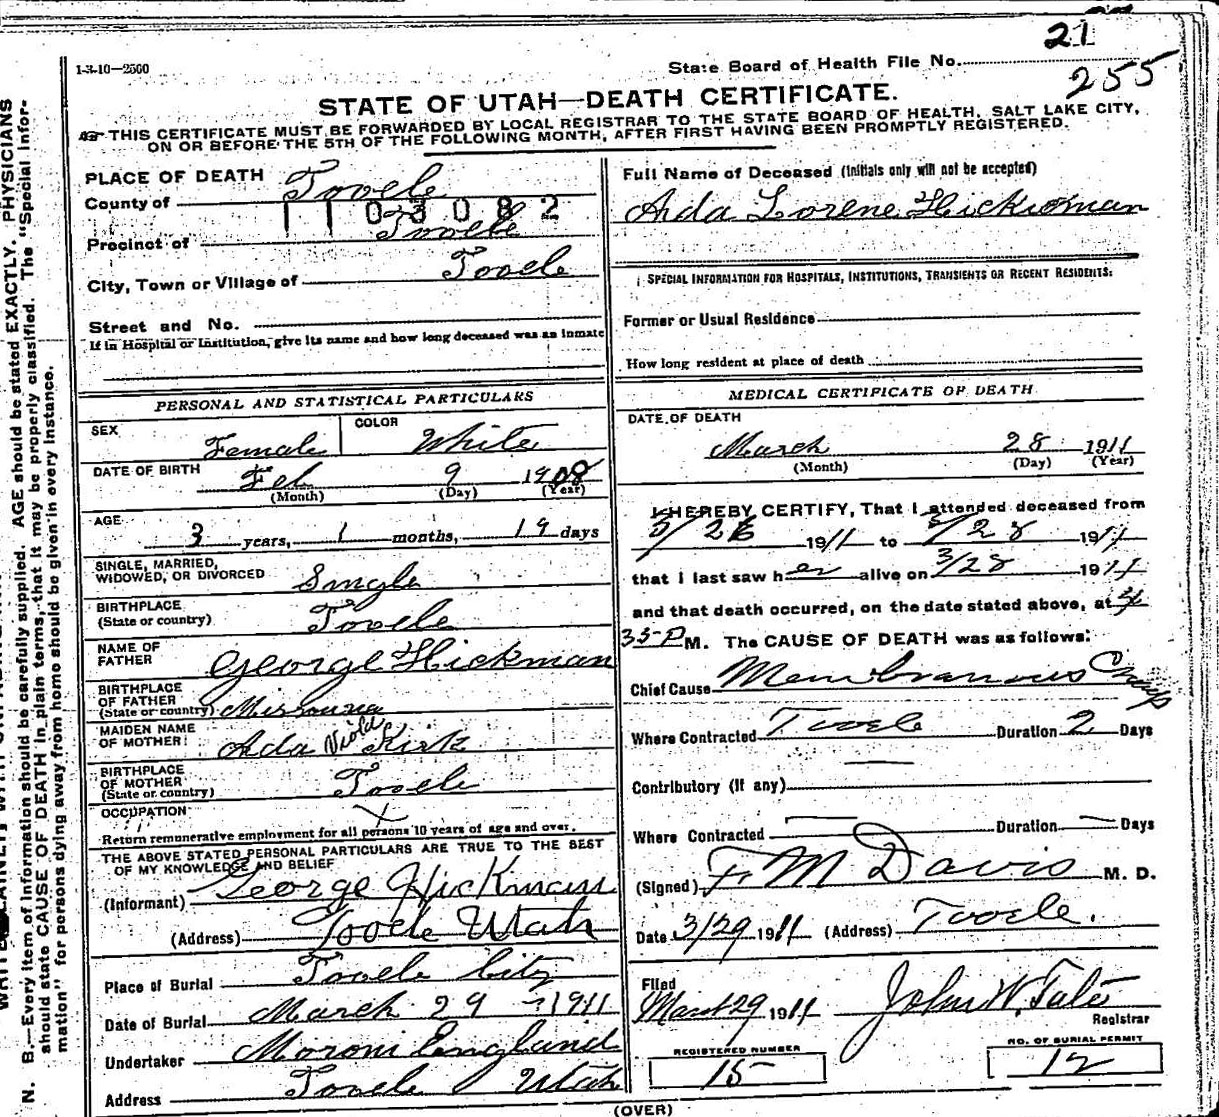 21
1-3-10-2500
State Board of Health File No.
255
STATE OF UTAH—DEATH CERTIFICATE.
THIS CERTIFICATE MUST BE FORWARDED BY LOCAL REGISTRAR TO THE STATE BOARD OF HEALTH, SALT LAKE CITY,
ON OR BEFORE THE 5TH OF THE FOLLOWING MONTH, AFTER FIRST HAVING BEEN PROMPTLY REGISTERED.
PLACE OF DEATH
County of Tooele
1103082
Precinct of Tooele
City, Town or Village of Tooele
Street and No.
If in Hospital or Institution, give its name and how long deceased was an inmate
PERSONAL AND STATISTICAL PARTICULARS
SEX Female COLOR White
DATE OF BIRTH Feb 9 1908
(Month) (Day) (Year)
AGE 3 years, 1 months, 19 days
SINGLE, MARRIED,
WIDOWED, OR DIVORCED Single
BIRTHPLACE
(State or country) Tooele
NAME OF
FATHER George Hickman
BIRTHPLACE
OF FATHER
(State or country) Missouria
MAIDEN NAME
OF MOTHER Ada Viola Kirk
BIRTHPLACE
OF MOTHER
(State or country) Tooele
OCCUPATION X
Return remunerative employment for all persons 10 years of age and over.
THE ABOVE STATED PERSONAL PARTICULARS ARE TRUE TO THE BEST
OF MY KNOWLEDGE AND BELIEF
(Informant) George Hickman
(Address) Tooele Utah
Place of Burial Tooele City
Date of Burial March 29 - 1911
Undertaker Moroni England
Address Tooele Utah
Full Name of Deceased (Initials only will not be accepted)
Ada Lorene Hickman
SPECIAL INFORMATION FOR HOSPITALS, INSTITUTIONS, TRANSIENTS OR RECENT RESIDENTS:
Former or Usual Residence
How long resident at place of death
MEDICAL CERTIFICATE OF DEATH
DATE OF DEATH
March 28 1911
(Month) (Day) (Year)
I HEREBY CERTIFY, That I attended deceased from
3/26 1911 to 3/28 1911
that I last saw her alive on 3/28 1911
and that death occurred, on the date stated above, at
35 P M. The CAUSE OF DEATH was as follows:
Chief Cause Membranous Croup
Where Contracted Tooele Duration 2 Days
Contributory (if any)
Where Contracted — Duration — Days
(Signed) F. M Davis M. D.
Date 3/29 1911 (Address) Tooele.
Filed
Mar 29 1911 John W. Tate
Registrar
REGISTERED NUMBER
15
NO. OF BURIAL PERMIT
12
(OVER)
N. B.—Every item of information should be carefully supplied. AGE should be stated EXACTLY. PHYSICIANS
should state CAUSE OF DEATH in plain terms, that it may be properly classified. The "Special Infor-
mation" for persons dying away from home should be given in every instance.